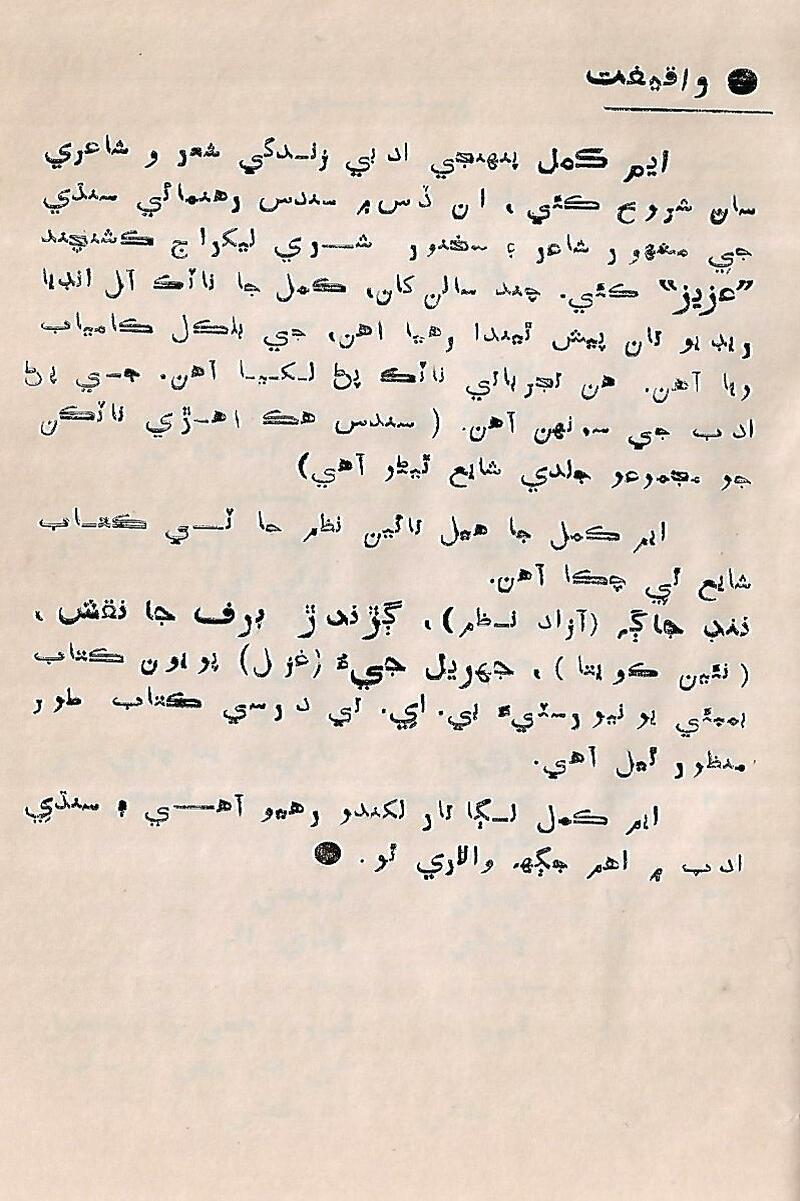 ● واقيفت
ايم ڪمل پنهنجي ادبي زندگي شعر و شاعري
سان شروع ڪئي، ان ڏس ۾ سندس رهنمائي سنڌي
جي مشهور شاعر ۽ سخنور شري ليکراج ڪشنچند
”عزيز“ ڪئي. چند سالن کان، ڪمل جا ناٽڪ آل انڊيا
ريڊيو تان پيش ٿيندا رهيا اهن، جي بلڪل ڪامياب
ويا آهن. هن تجرباتي ناٽڪ پڻ لکيا آهن. جي پڻ
ادب جي سونهن آهن. (سندس هڪ اهڙي ناٽڪن
جو مجموعو جلدي شايع ٿيڻو آهي)
ايم ڪمل جا هيل تائين نظم جا ٽي ڪتاب
شايع ٿي چڪا آهن.
ننڊ جاڳ (آزاد نظم)، ڳڙندڙ برف جا نقش،
(نئين ڪويتا)، جهريل جيءُ (غزل) پويون ڪتاب
بمبئي يونيورسٽيءَ بي. اي. لي درسي ڪتاب طور
منظور ٿيل آهي.
ايم ڪمل لڳاتار لکندو رهيو آهي ۽ سنڌي
ادب ۾ اهم جڳهه والاري ٿو. ●